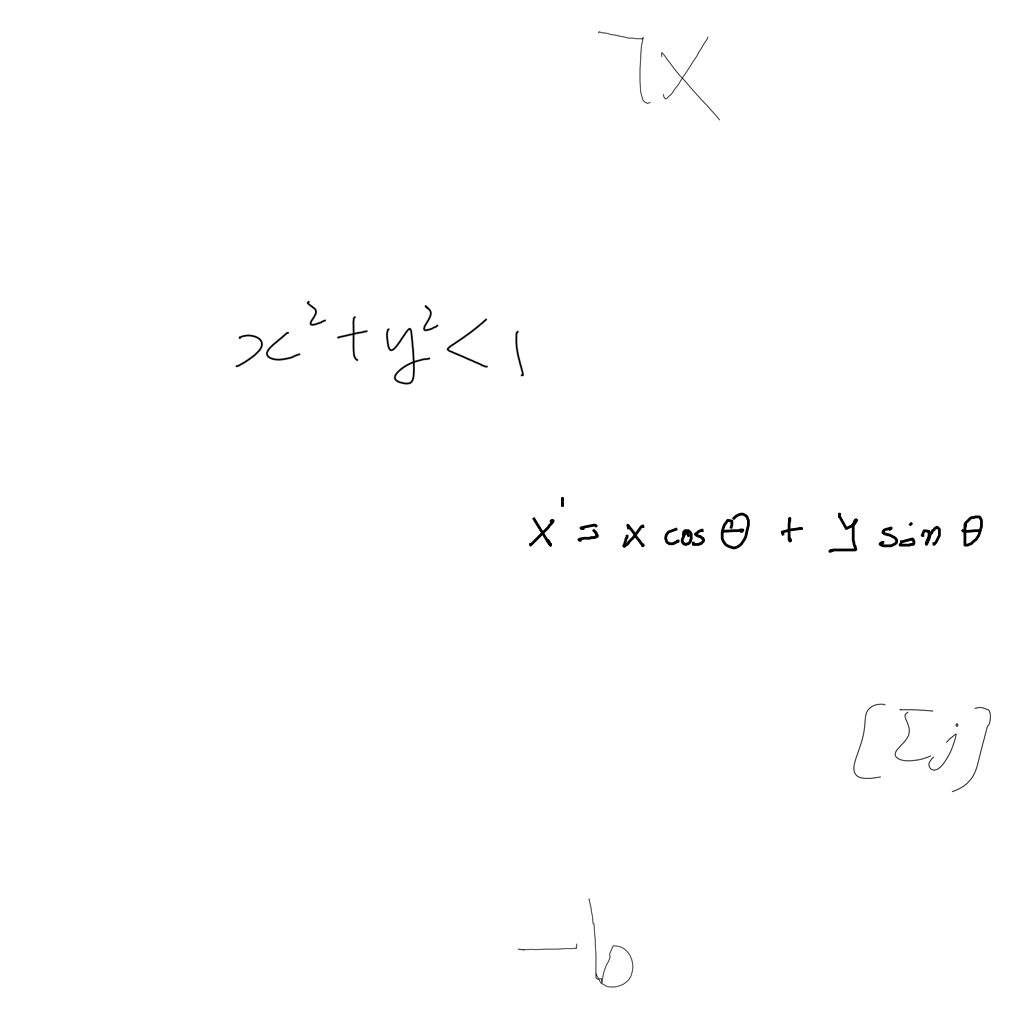 7X
x² + y² < 1
x' = x cos θ + y sin θ
[Σj]
-b